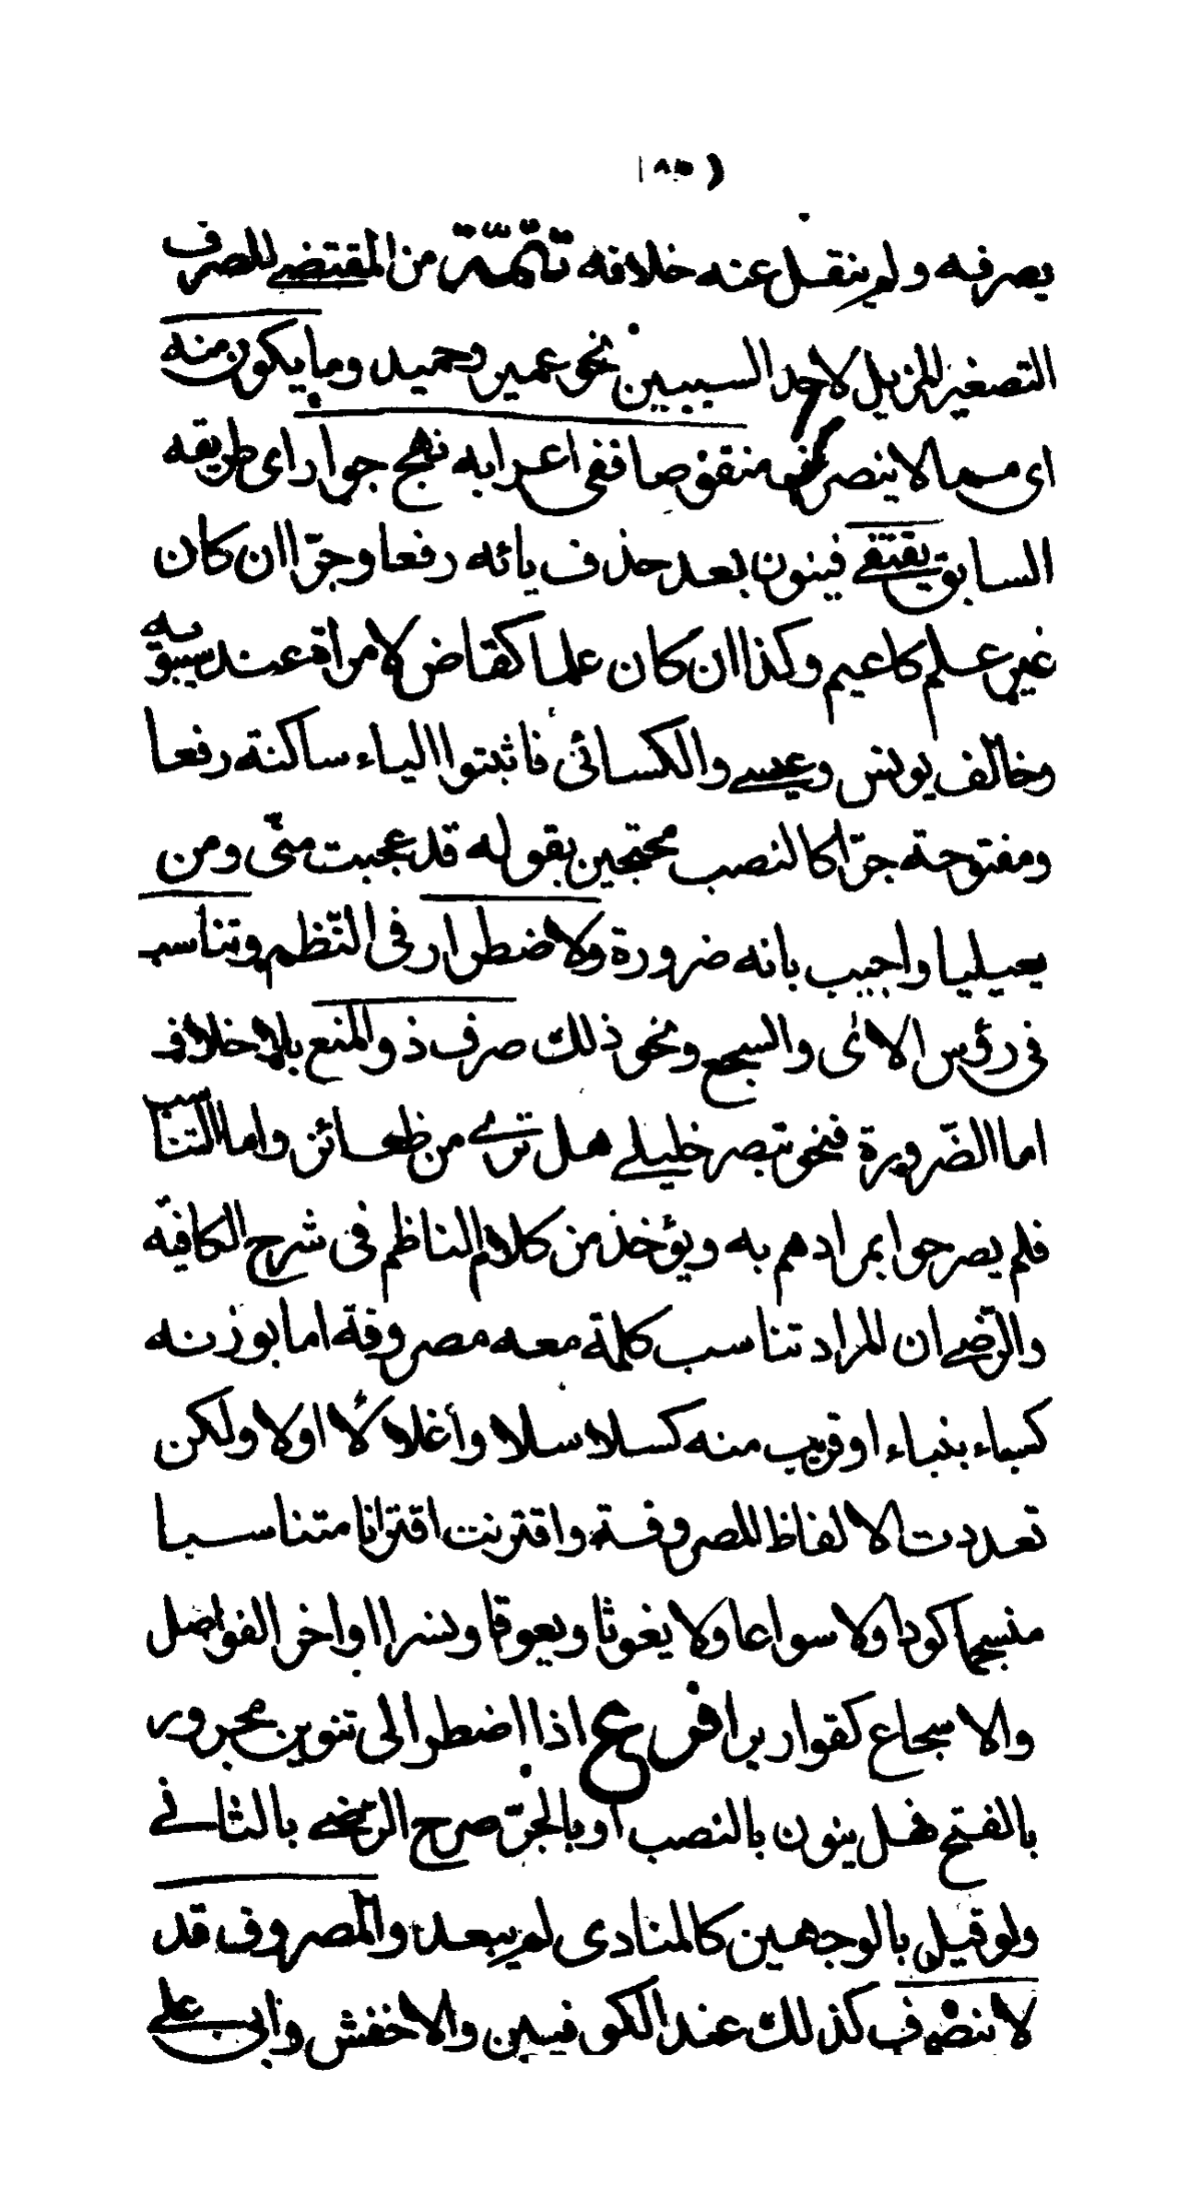 يصرفه ولم ينقل عنه خلافه تتمّة من المقتضے للصرف
التصغير المزيل لاحد السببين نحو عمير وحميد وما يكون منه
اى مما لا ينصرف منقوصا ففى اعرابه نهج جوار اى طريقه
السابق يقتفے فينون بعد حذف يائه رفعا وجرّا ان كان
غير علم كاعيم وكذا ان كان علما كقاض لامراة عند سيبويه
وخالف يونس وعيسے والكسائى فاثبتوا الياء ساكنة رفعا
ومفتوحة جرّا كالنصب محتجين بقوله قد عجبت منّى ومن
يعيليا واجيب بانه ضرورة ولاضطرار فى النّظم وتناسب
فى رؤس الاى والسجع ونحو ذلك صرف ذو المنع بلا خلاف
اما الضّرورة فنحو تبصر خليلے هل ترے من ظعائن واما التناسب
فلم يصرحوا بمرادهم به ويؤخذ من كلام الناظم فى شرح الكافيّه
والرّضے ان المراد تناسب كلمة معه مصروفة اما بوزنه
كسباء بنباء او قريب منه كسلاسلا وأغلالًا اولا ولكن
تعددت الالفاظ المصروفة واقترنت اقترانا متناسبا
منسجما كودا ولا سواعا ولا يغوثا ويعوقا ونسرا اواخر الفواصل
والاسجاع كقواريرا فرع اذا اضطر الى تنوين مجرور
بالفتح فهل ينون بالنصب او بالجرّ صرح الرّضے بالثانے
ولو قيل بالوجهين كالمنادى لم يبعد والمصروف قد
لا ينصرف كذلك عند الكوفيين والاخفش وابى علے